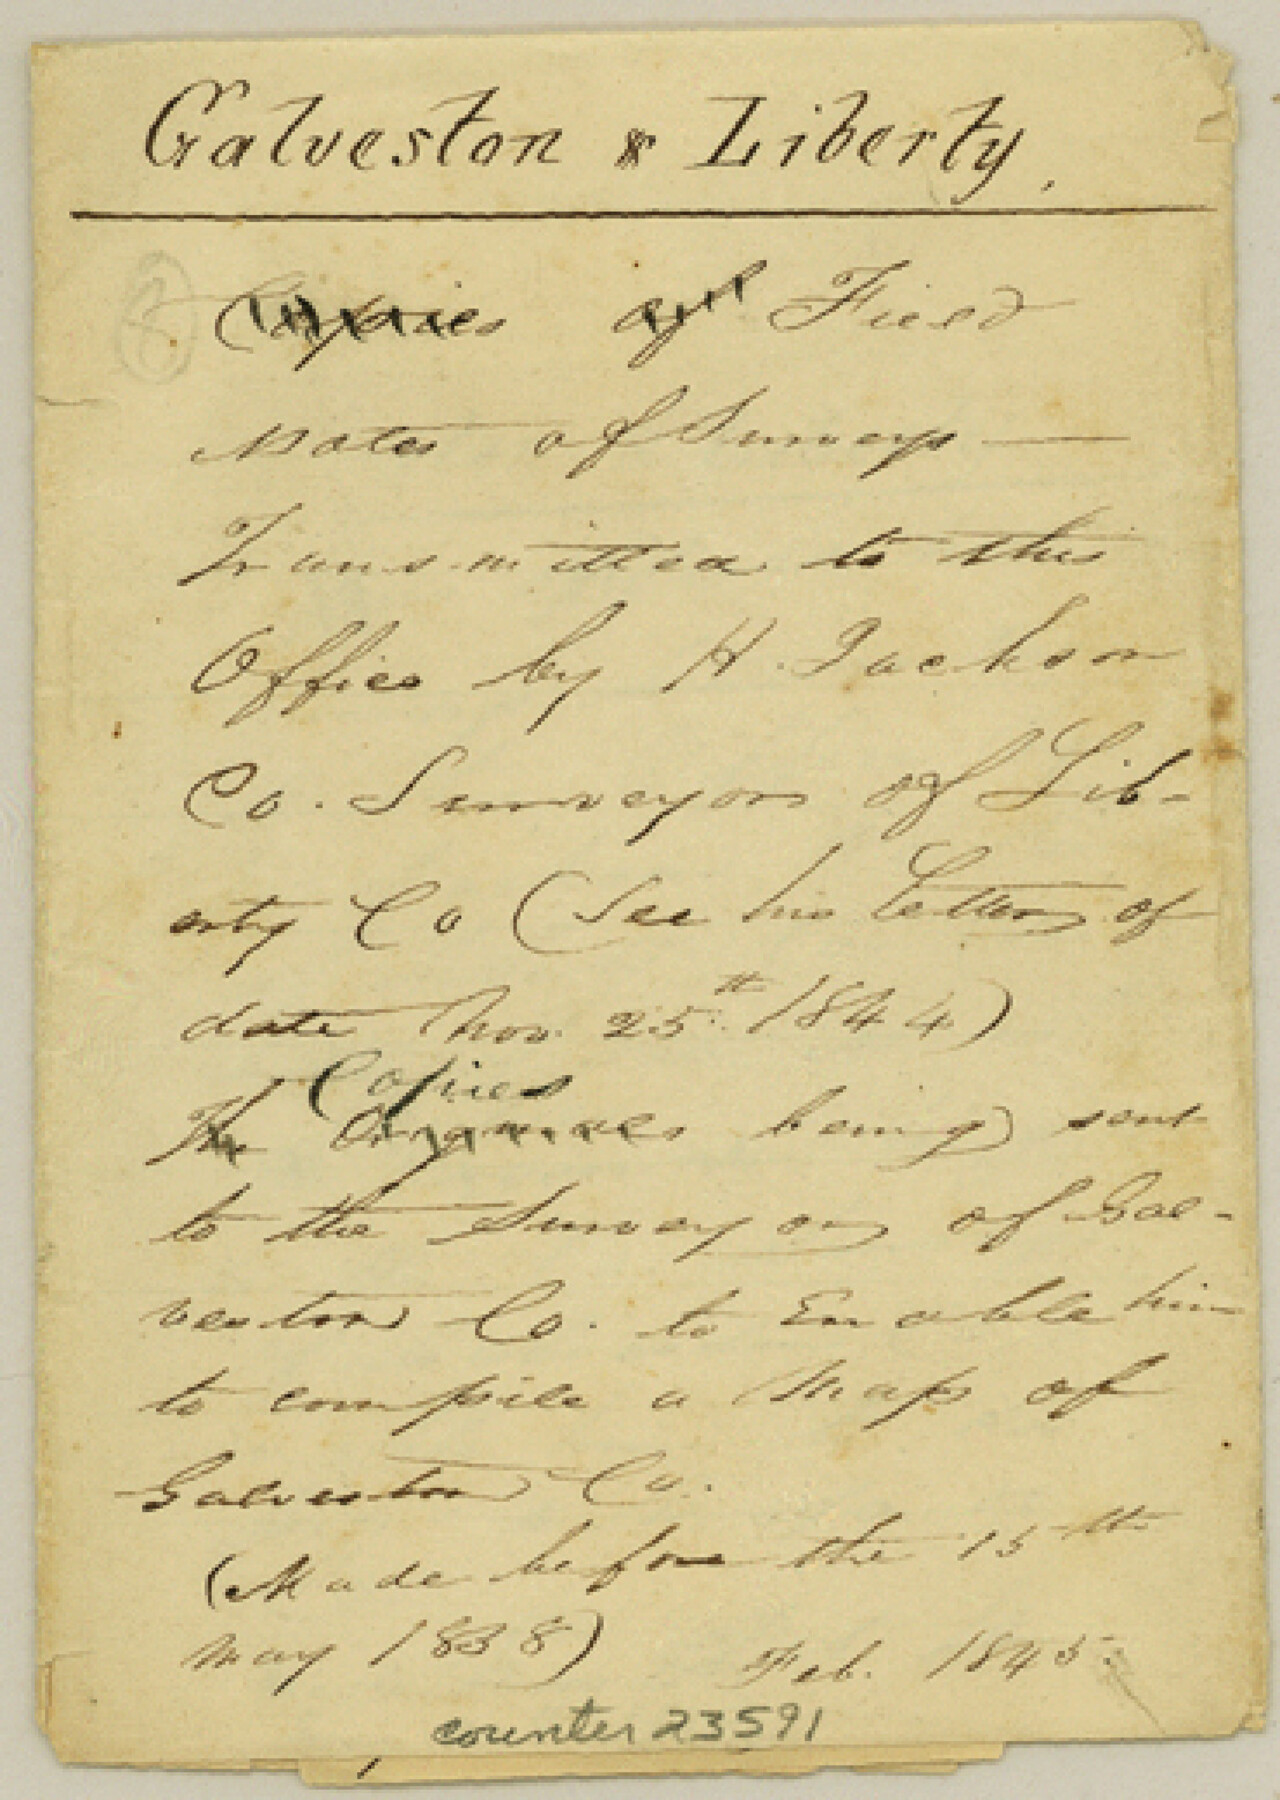 Galveston & Liberty,
8
Copies of Field
Notes of Surveys —
Transmitted to this
Office by H. Jackson
Co. Surveyor of Lib-
erty Co (See his Letter of
date Nov. 25th 1844)
Copies
The Originales being sent
to the Surveyor of Gal-
veston Co. to Enable him
to compile a Map of
Galveston Co.
(Made before the 15th
May 1838)
Feb. 1845.
counter 23591